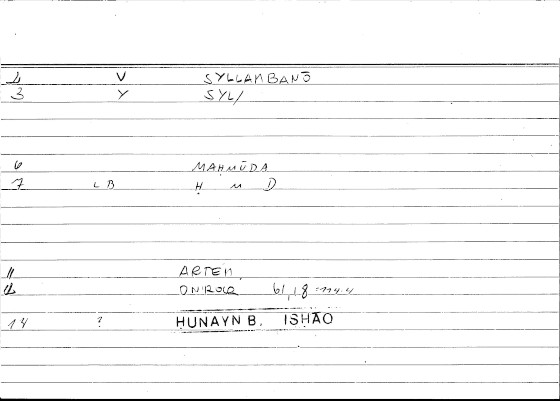 V SYLLAMBANŌ
3 Y SYL/
6 MAḤMŪDA
7 LB Ḥ M D
11 ARTEM.
ONIROCR 61,18
14 ? HUNAYN B. ISHAO